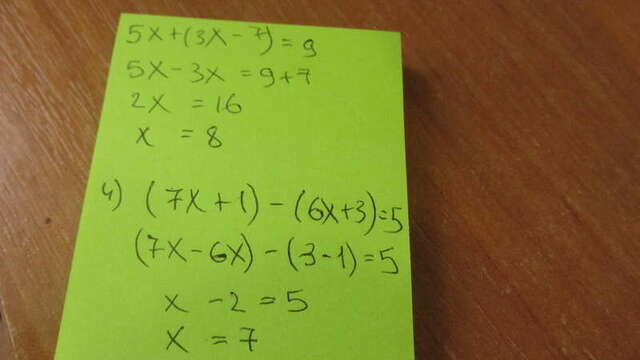 5x+(3x-7)=9
5x-3x=9+7
2x=16
x=8
4) (7x+1)-(6x+3)=5
(7x-6x)-(3-1)=5
x-2=5
x=7